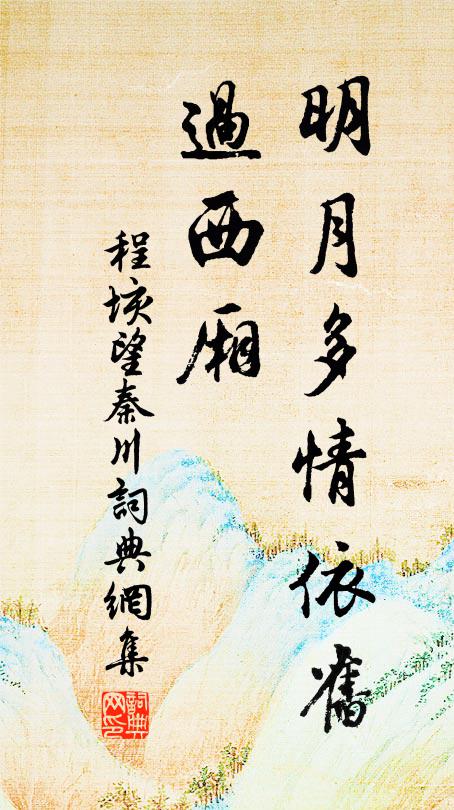 明月多情依舊
過西厢
程垓望秦川詞典網集
詞典
网印